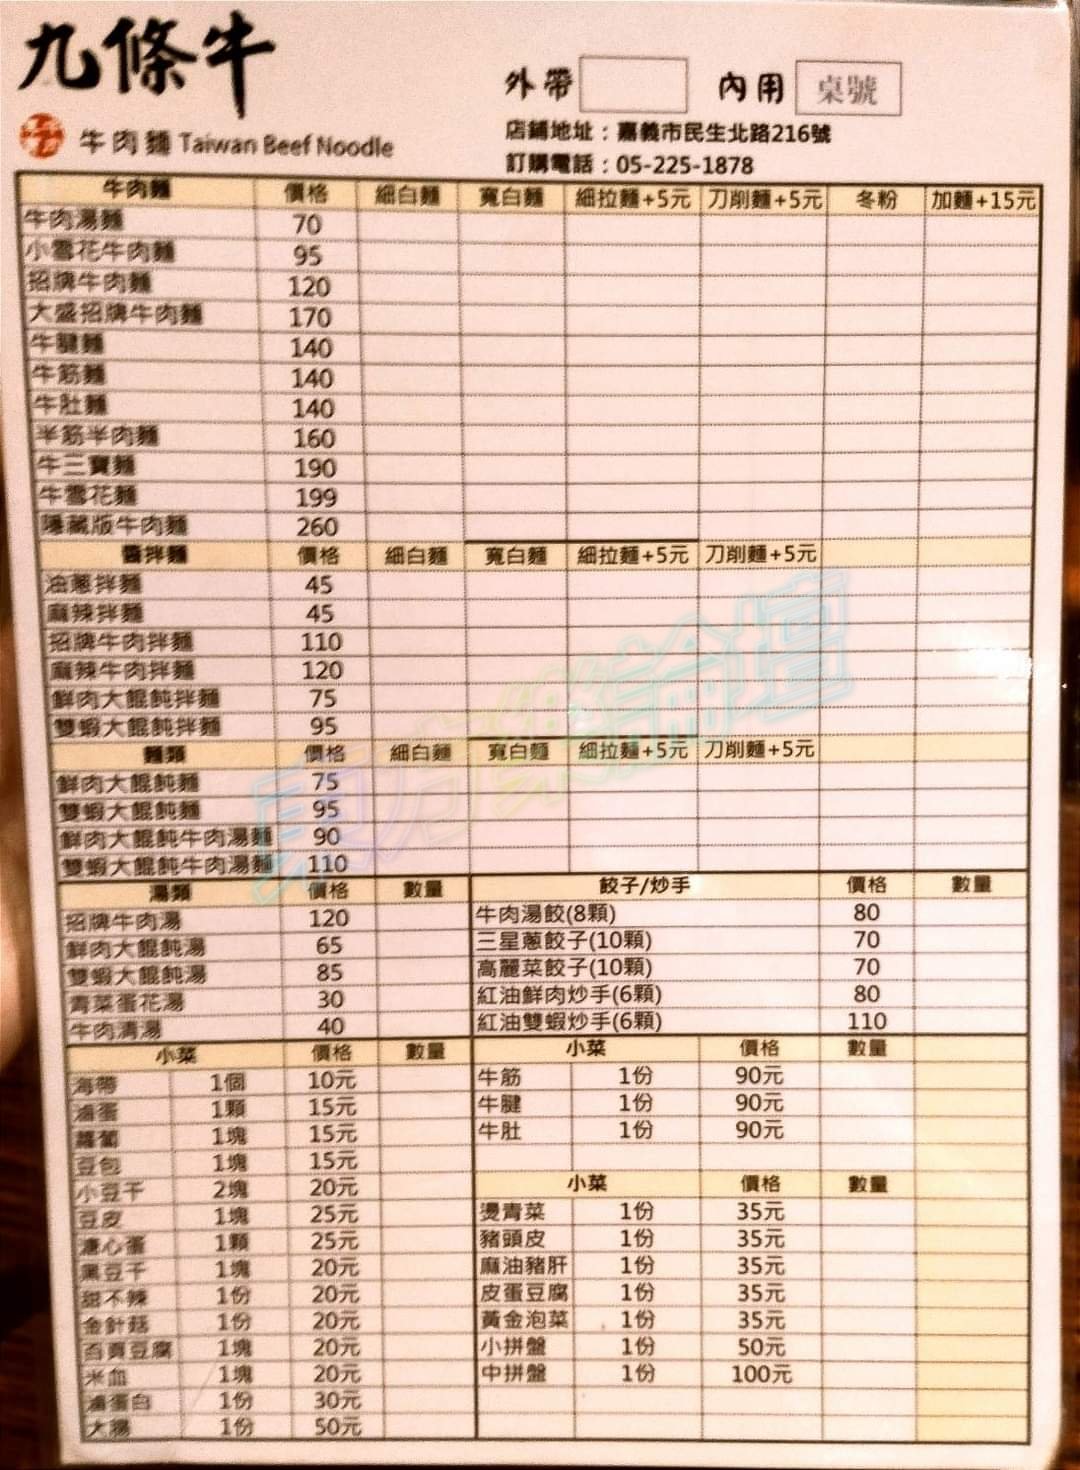 九條牛
牛肉麵 Taiwan Beef Noodle
外帶 內用 桌號
店鋪地址：嘉義市民生北路216號
訂購電話：05-225-1878
牛肉麵 價格 細白麵 寬白麵 細拉麵+5元 刀削麵+5元 冬粉 加麵+15元
牛肉湯麵 70
小雪花牛肉麵 95
招牌牛肉麵 120
大盛招牌牛肉麵 170
牛腱麵 140
牛筋麵 140
牛肚麵 140
半筋半肉麵 160
牛三寶麵 190
牛雪花麵 199
隱藏版牛肉麵 260
醬拌麵 價格 細白麵 寬白麵 細拉麵+5元 刀削麵+5元
油蔥拌麵 45
麻辣拌麵 45
招牌牛肉拌麵 110
麻辣牛肉拌麵 120
鮮肉大餛飩拌麵 75
雙蝦大餛飩拌麵 95
麵類 價格 細白麵 寬白麵 細拉麵+5元 刀削麵+5元
鮮肉大餛飩麵 75
雙蝦大餛飩麵 95
鮮肉大餛飩牛肉湯麵 90
雙蝦大餛飩牛肉湯麵 110
湯類 價格 數量
招牌牛肉湯 120
鮮肉大餛飩湯 65
雙蝦大餛飩湯 85
青菜蛋花湯 30
牛肉清湯 40
餃子/炒手 價格 數量
牛肉湯餃(8顆) 80
三星蔥餃子(10顆) 70
高麗菜餃子(10顆) 70
紅油鮮肉炒手(6顆) 80
紅油雙蝦炒手(6顆) 110
小菜 價格 數量
海帶 1個 10元
滷蛋 1顆 15元
蘿蔔 1塊 15元
豆包 1塊 15元
小豆干 2塊 20元
豆皮 1塊 25元
溏心蛋 1顆 25元
黑豆干 1塊 20元
甜不辣 1份 20元
金針菇 1份 20元
百頁豆腐 1塊 20元
米血 1塊 20元
滷蛋白 1份 30元
大腸 1份 50元
小菜 價格 數量
牛筋 1份 90元
牛腱 1份 90元
牛肚 1份 90元
小菜 價格 數量
燙青菜 1份 35元
豬頭皮 1份 35元
麻油豬肝 1份 35元
皮蛋豆腐 1份 35元
黃金泡菜 1份 35元
小拼盤 1份 50元
中拼盤 1份 100元